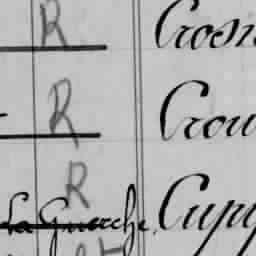 R Crosn
R Crou
R
La Guerche. Cupy